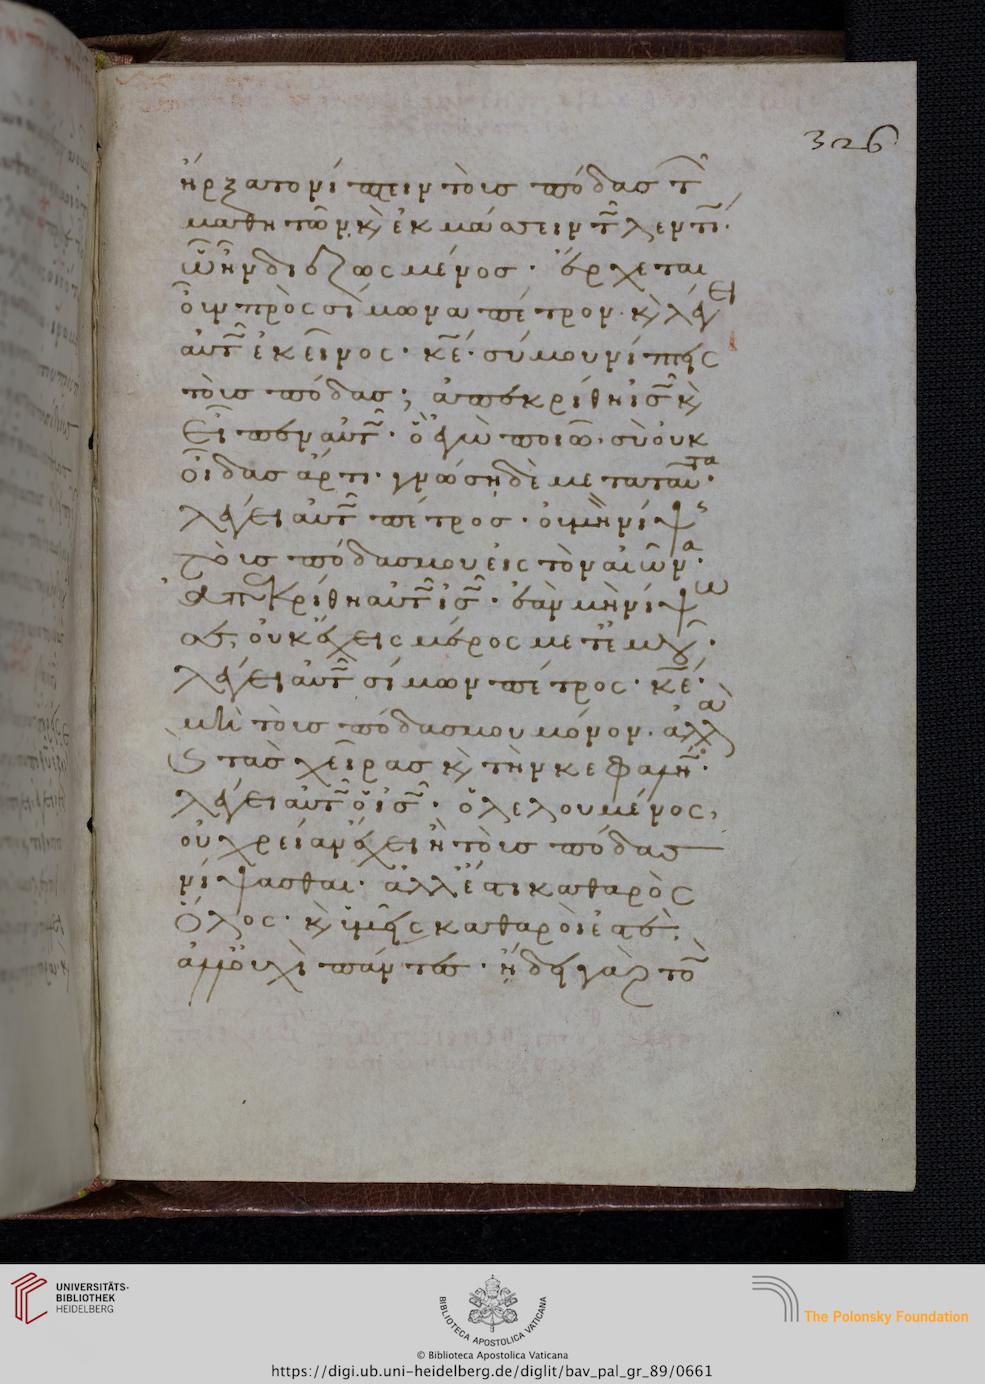 326
ἤρξατο νίπτειν τοὺς πόδας τῶν
μαθητῶν κὲ ἐκμάσσειν τῶ λεντίω
ὧ ἦν διεζωσμένος · ἔρχεται
οὖν πρὸς σίμωνα πέτρον · κὲ λέγει
αὐτῶ ἐκεῖνος · κε · σύ μου νίπτεις
τοὺς πόδας ; ἀπεκρίθη ις κὲ
εἶπεν αὐτῶ · ὃ ἐγὼ ποιῶ · σὺ οὐκ
οἶδας ἄρτι · γνώση δὲ μετὰ ταῦτα ·
λέγει αὐτῶ πέτρος · οὐ μὴ νίψης
τοὺς πόδας μου εἰς τὸν αἰῶνα ·
ἀπεκρίθη αὐτῶ ὁ ις · ἐὰν μὴ νίψω
σε, οὐκ ἔχεις μέρος μετ' ἐμοῦ ·
λέγει αὐτῶ σίμων πέτρος · κε ·
μὴ τοὺς πόδας μου μόνον · ἀλλὰ
κὲ τὰς χεῖρας κὲ τὴν κεφαλήν ·
λέγει αὐτῶ ὁ ις · ὁ λελουμένος,
οὐ χρείαν ἔχει ἢ τοὺς πόδας
νίψασθαι · ἀλλ' ἔστι καθαρὸς
ὅλος · κὲ ὑμεῖς καθαροί ἐστε ·
ἀλλ' οὐχὶ πάντες · ἤδει γὰρ τὸν
UNIVERSITÄTS-
BIBLIOTHEK
HEIDELBERG
BIBLIOTECA APOSTOLICA VATICANA
The Polonsky Foundation
© Biblioteca Apostolica Vaticana
https://digi.ub.uni-heidelberg.de/diglit/bav_pal_gr_89/0661